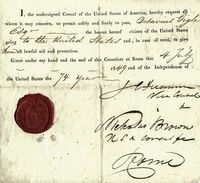 I, the undersigned Consul of the United States of America, hereby request all
whom it may concern, to permit safely and freely to pass, Octavius
Esq— the bearer hereof citizen of the United States
to the United States and, in case of need, to give
him all lawful aid and protection.
Given under my hand and the seal of this Consulate at Rome this 4 July
1849 and of the Independence of
the United States the 74 year
J C
Vice Consul
Nicholas Brown
U S a Consul for
Rome